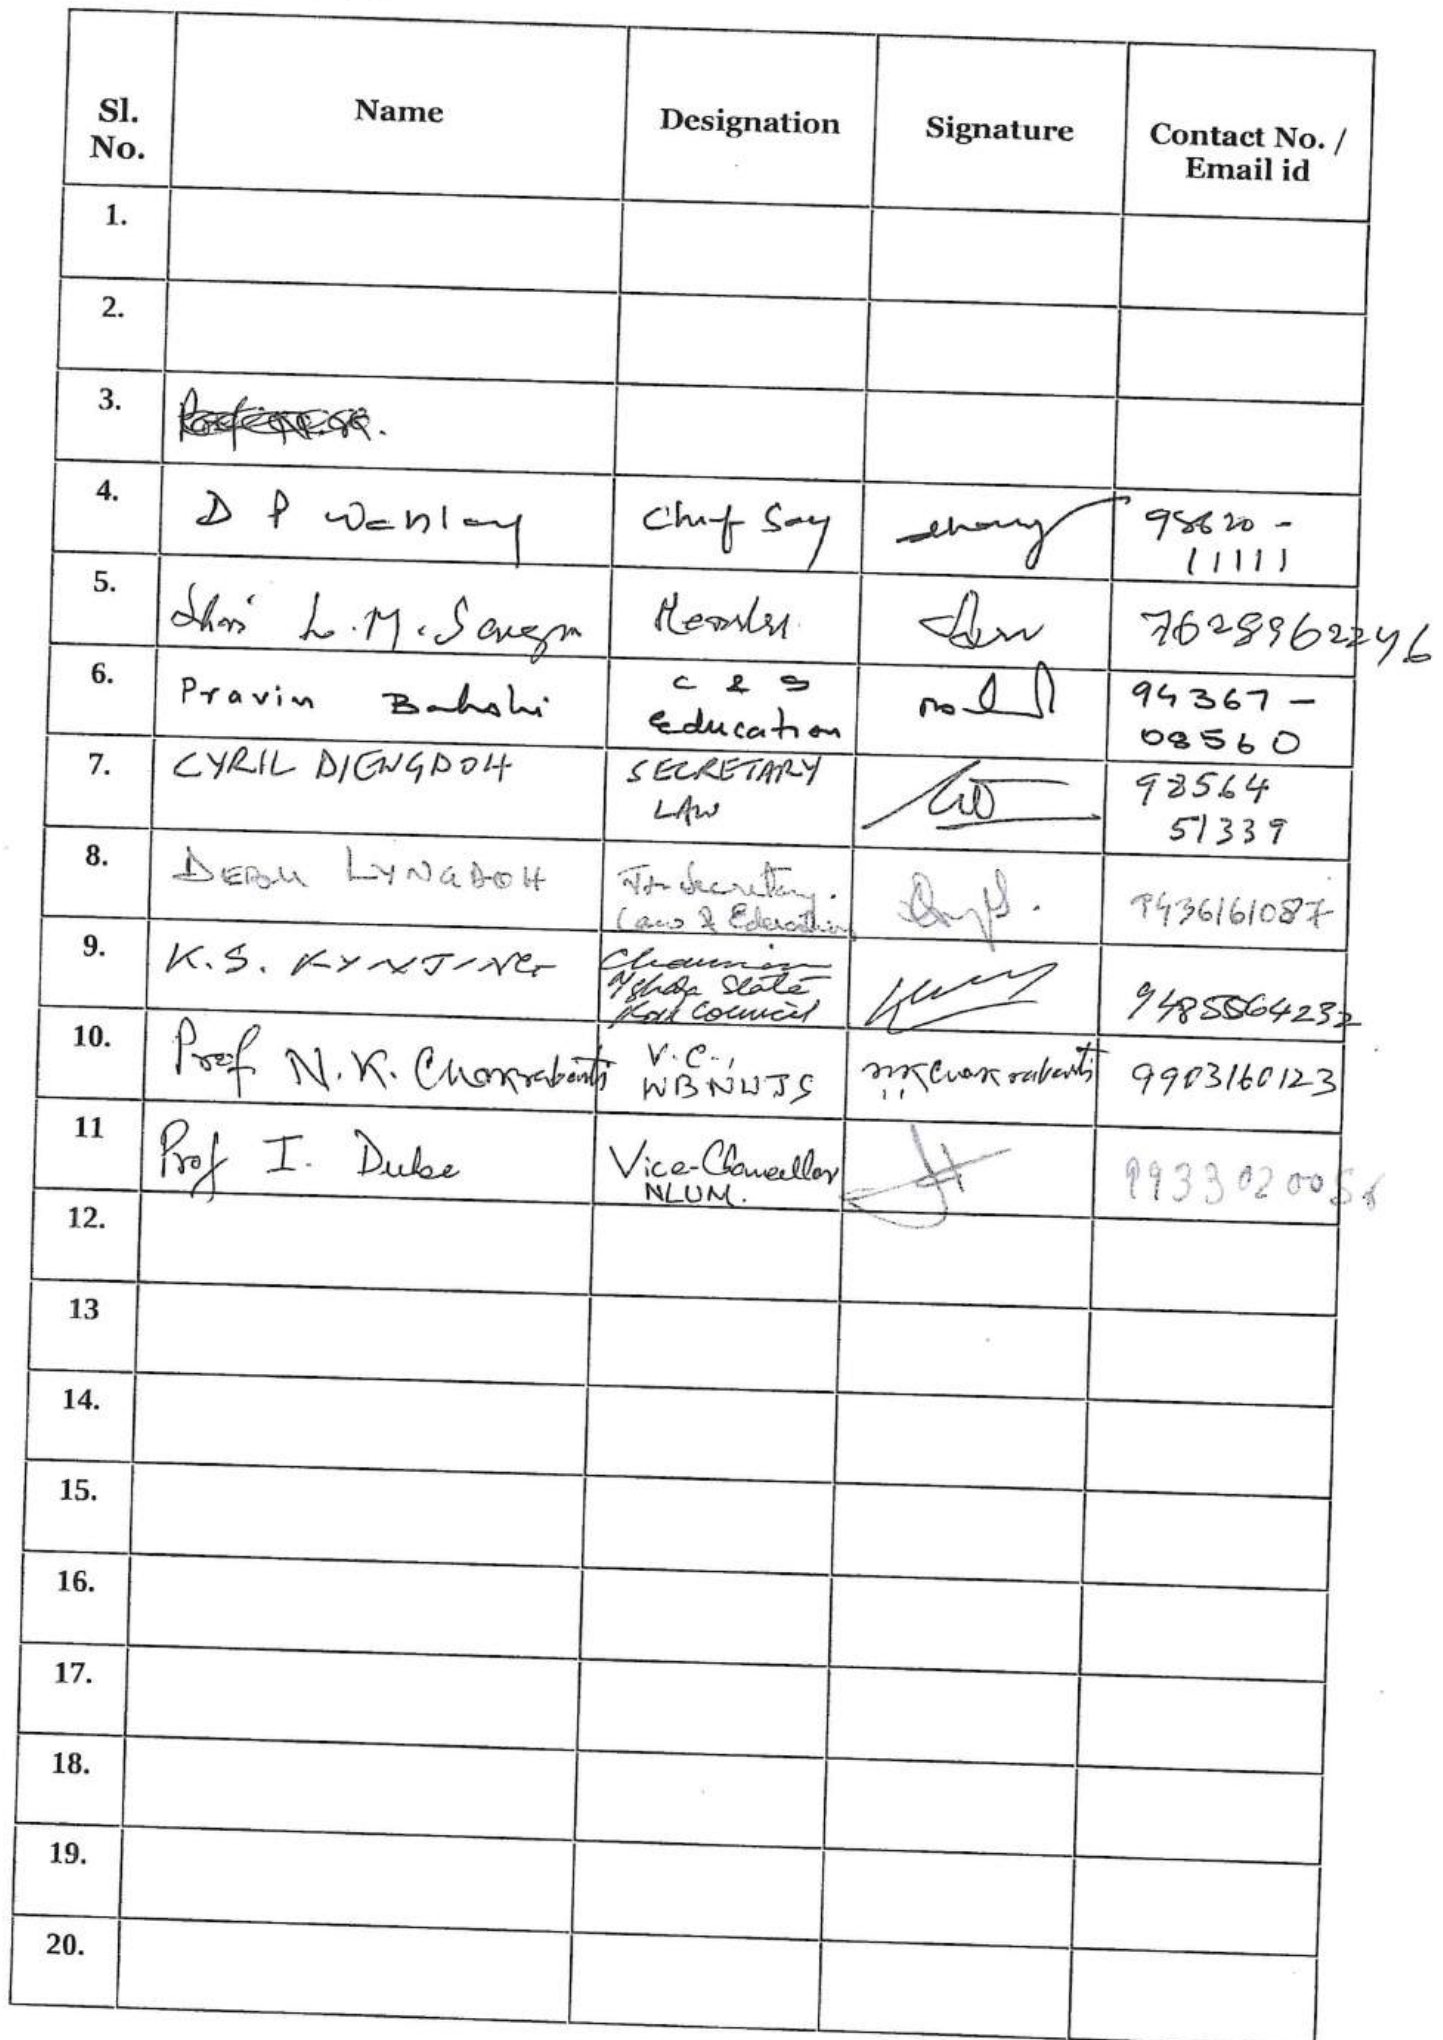 Sl. No. Name Designation Signature Contact No. / Email id
1.
2.
3.
4. D P Wahlang Chief Secy 98620 - 11111
5. Shri L. M. Sangma Member 7628962246
6. Pravin Bakshi C & S Education 94367 - 08560
7. CYRIL DIENGDOH SECRETARY LAW 98564 51339
8. LYNGDOH Jt. Secretary. Law & Education 9436161087
9. K.S. KYNJING Chairman State Council
10. Prof N. K. Chakrabarti V.C., WBNUJS NKChakrabarti 9903160123
11 Prof I. Dube Vice-Chancellor NLUM.
12.
13
14.
15.
16.
17.
18.
19.
20.